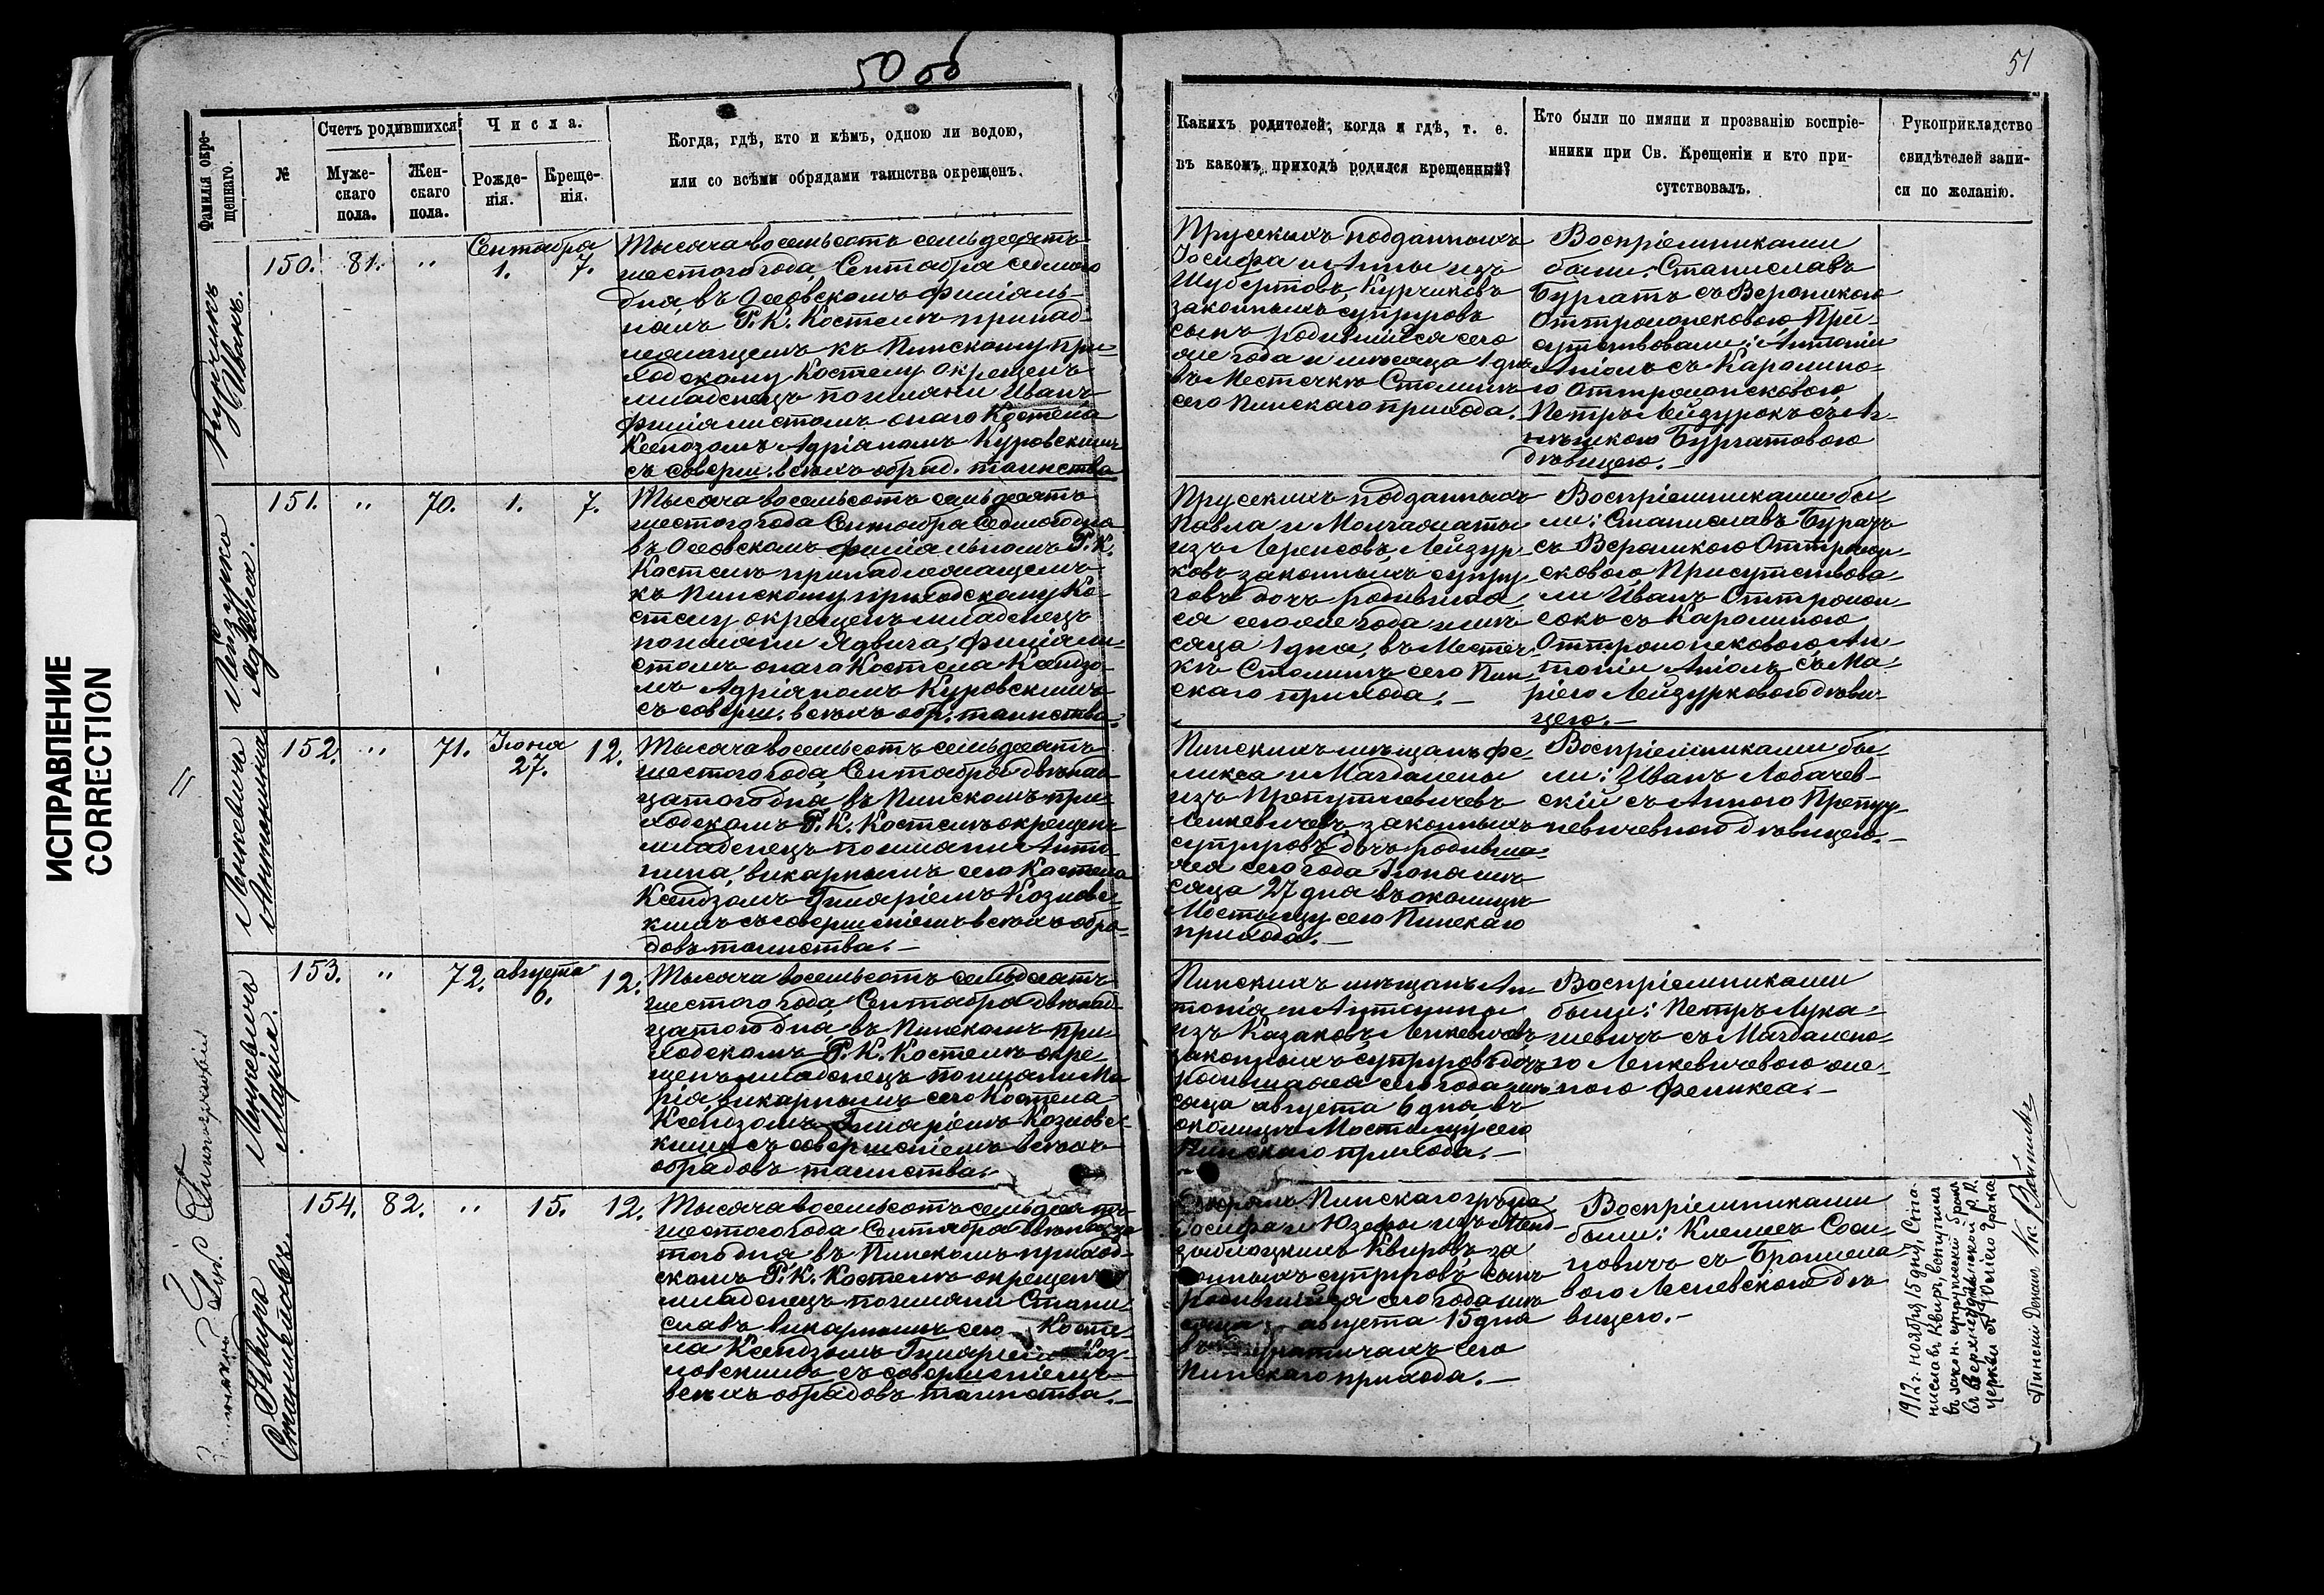 50 об
51
ИСПРАВЛЕНИЕ
CORRECTION
Фамилія окре-
щеннаго.
№
Счетъ родившихся
Муже-
скаго
пола.
Жен-
скаго
пола.
Числа.
Рожде-
нія.
Креще-
нія.
Когда, гдѣ, кто и кѣмъ, одною ли водою,
или со всѣми обрядами таинства окрещенъ.
Какихъ родителей, когда и гдѣ, т. е.
въ какомъ приходѣ родился крещенный?
Кто были по имяни и прозванію воспріе-
мники при Св. Крещеніи и кто при-
сутствовалъ.
Рукоприкладство
свидѣтелей запи-
си по желанію.
Курчикъ
Иванъ.
150. 81. " Сентября
1. 7.
Тысяча восемьсотъ семьдесятъ
шестого года, Сентября седьмого
дня, въ Осовскомъ филіаль-
номъ Р. К. Костелѣ принад-
лежащемъ къ Пинскому при-
ходскому Костелу окрещенъ
младенецъ по имяни Иванъ
филіалистомъ онаго Костела
Ксендзомъ Адріаномъ Куровскимъ
съ соверш. всѣхъ обряд. таинства
Прусскихъ подданныхъ
Іосифа и Анны изъ
Шубертовъ, Курчиковъ
законныхъ супруговъ
сынъ родившійся сего
же года и мѣсяца 1 дня
въ Местечкѣ Столинѣ
сего Пинскаго прихода.
Воспріемниками
были: Станиславъ
съ Вероникою
При-
сутствовали: Антоній
Аніолъ съ Каролино-
ю
Петръ Лейзурокъ съ Аг-
нѣшкою Бургатовою
дѣвицею.—
Лейзурка
Ядвига.
151. " 70. 1. 7.
Тысяча восемьсотъ семьдесятъ
шестого года Сентября седьмого дня
въ Осовскомъ филіальномъ Р. К.
Костелѣ принадлежащемъ
къ Пинскому приходскому Ко-
стелу окрещенъ младенецъ
по имяни Ядвига, филіали-
стомъ онаго Костела Ксендзо-
мъ Адріаномъ Куровскимъ
съ соверш. всѣхъ обр. таинства.
Прусскихъ подданныхъ
Павла и
изъ Лейзур-
ковъ законныхъ супру-
говъ дочь родившая-
ся сего же года и мѣ-
сяца 1 дня, въ Местеч-
кѣ Столинѣ сего Пин-
скаго прихода.—
Воспріемниками бы-
ли: Станиславъ
съ Вероникою
Присутствова-
ли Иванъ
съ Каролиною
Ан-
тоній Аніолъ съ Ма-
ріею Лейзурковою дѣви-
цею.—
Ленкевичъ
Антонина
152. " 71. Іюня
27. 12.
Тысяча восемьсотъ семьдесятъ
шестого года, Сентября двѣнад-
цатого дня, въ Пинскомъ при-
ходскомъ Р. К. Костелѣ окрещенъ
младенецъ по имяни Анто-
нина, викарнымъ сего Костела
Ксендзомъ Гиляріемъ Козловс-
кимъ съ совершеніемъ всѣхъ обря-
довъ таинства.—
Пинскихъ мѣщанъ Фе-
ликса и Магдалены
изъ
Ленкевичевъ законныхъ
супруговъ дочь родивша-
яся сего года Іюня мѣ-
сяца 27 дня въ околицѣ
Мостыщу сего Пинскаго
прихода.—
Воспріемниками бы-
ли: Иванъ Лобачев-
скій съ Анною
дѣвицею.—
Ленкевичъ
Марія.
153. " 72. августа
6. 12.
Тысяча восемьсотъ семьдесятъ
шестого года, Сентября двѣнад-
цатого дня, въ Пинскомъ при-
ходскомъ Р. К. Костелѣ окре-
щенъ младенецъ по имяни Ма-
рія, викарнымъ сего Костела
Ксендзомъ Гиляріемъ Козловс-
кимъ съ совершеніемъ всѣхъ
обрядовъ таинства.
Пинскихъ мѣщанъ Ан-
тонія и Антонины
изъ Казаковъ Ленкевичевъ
законныхъ супруговъ дочь
родившаяся сего года мѣ-
сяца августа 6 дня, въ
околицѣ Мостыщу сего
Пинскаго прихода.—
Воспріемниками
были: Петръ Лука-
шевичъ съ Магдалено-
ю Ленкевичевою же-
ною Феликса.—
Квиръ
Станиславъ.
154. 82. " 15. 12.
Тысяча восемьсотъ семьдесятъ
шестого года Сентября двѣнадца-
того дня въ Пинскомъ приход-
скомъ Р. К. Костелѣ окрещенъ
младенецъ по имяни Стани-
славъ викарнымъ сего Косте-
ла Ксендзомъ Гиляріемъ Коз-
ловскимъ съ совершеніемъ
всѣхъ обрядовъ таинства.—
Дворянъ Пинскаго уѣзда
Іосифа и Юзефы изъ
Квировъ за-
конныхъ супруговъ сынъ
родившійся сего года мѣ-
сяца августа 15 дня
въ сего
Пинскаго прихода.—
Воспріемниками
были: Клеменсъ Соси-
новичъ съ Бронисла-
вою дѣ-
вицею.—
1912 г. ноября 15 дня, Ста-
ниславъ Квиръ, вступилъ
въ закон. супружескій бракъ
въ Р. К.
церкви съ
Пинскій Деканъ Кс.